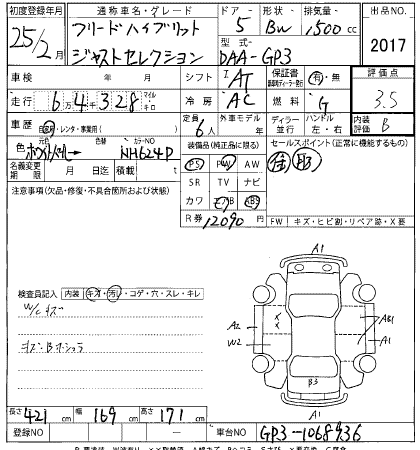 初度登録年月 通称車名・グレード ドア 形状 排気量 出品NO.
25/2月 フリードハイブリッド 5 BW 1,500cc
ジャストセレクション 型式 DAA-GP3 2017
車検 年 月 シフト IAT 保証書 有・無 評価点
走行 6万4千328 マイル キロ 冷房 AC 燃料 G 3.5
車歴 自家用・レンタ・事業用( ) 定員 6人 外車モデル 年 ディーラー 並行 ハンドル 左・右 内装評価 B
色 ホワイトパール→ 色替 カラーNO NH624P 装備品(純正に限る) セールスポイント(正常に機能するもの)
名義変更期限 月 日迄 積載 t PS PW AW
注意事項(欠品・修復・不具合箇所および状態) SR TV ナビ
カワ エアB ABS
R券 12090円 FW キズ・ヒビ割・リペア跡・X要
A1
検査員記入 内装 キズ・汚レ・コゲ・穴・スレ・キレ
W/C キズ
A2 AB1
W2 A1
B3
A1
長さ 421cm 幅 169cm 高さ 171cm
登録NO 車台NO GP3-1068936